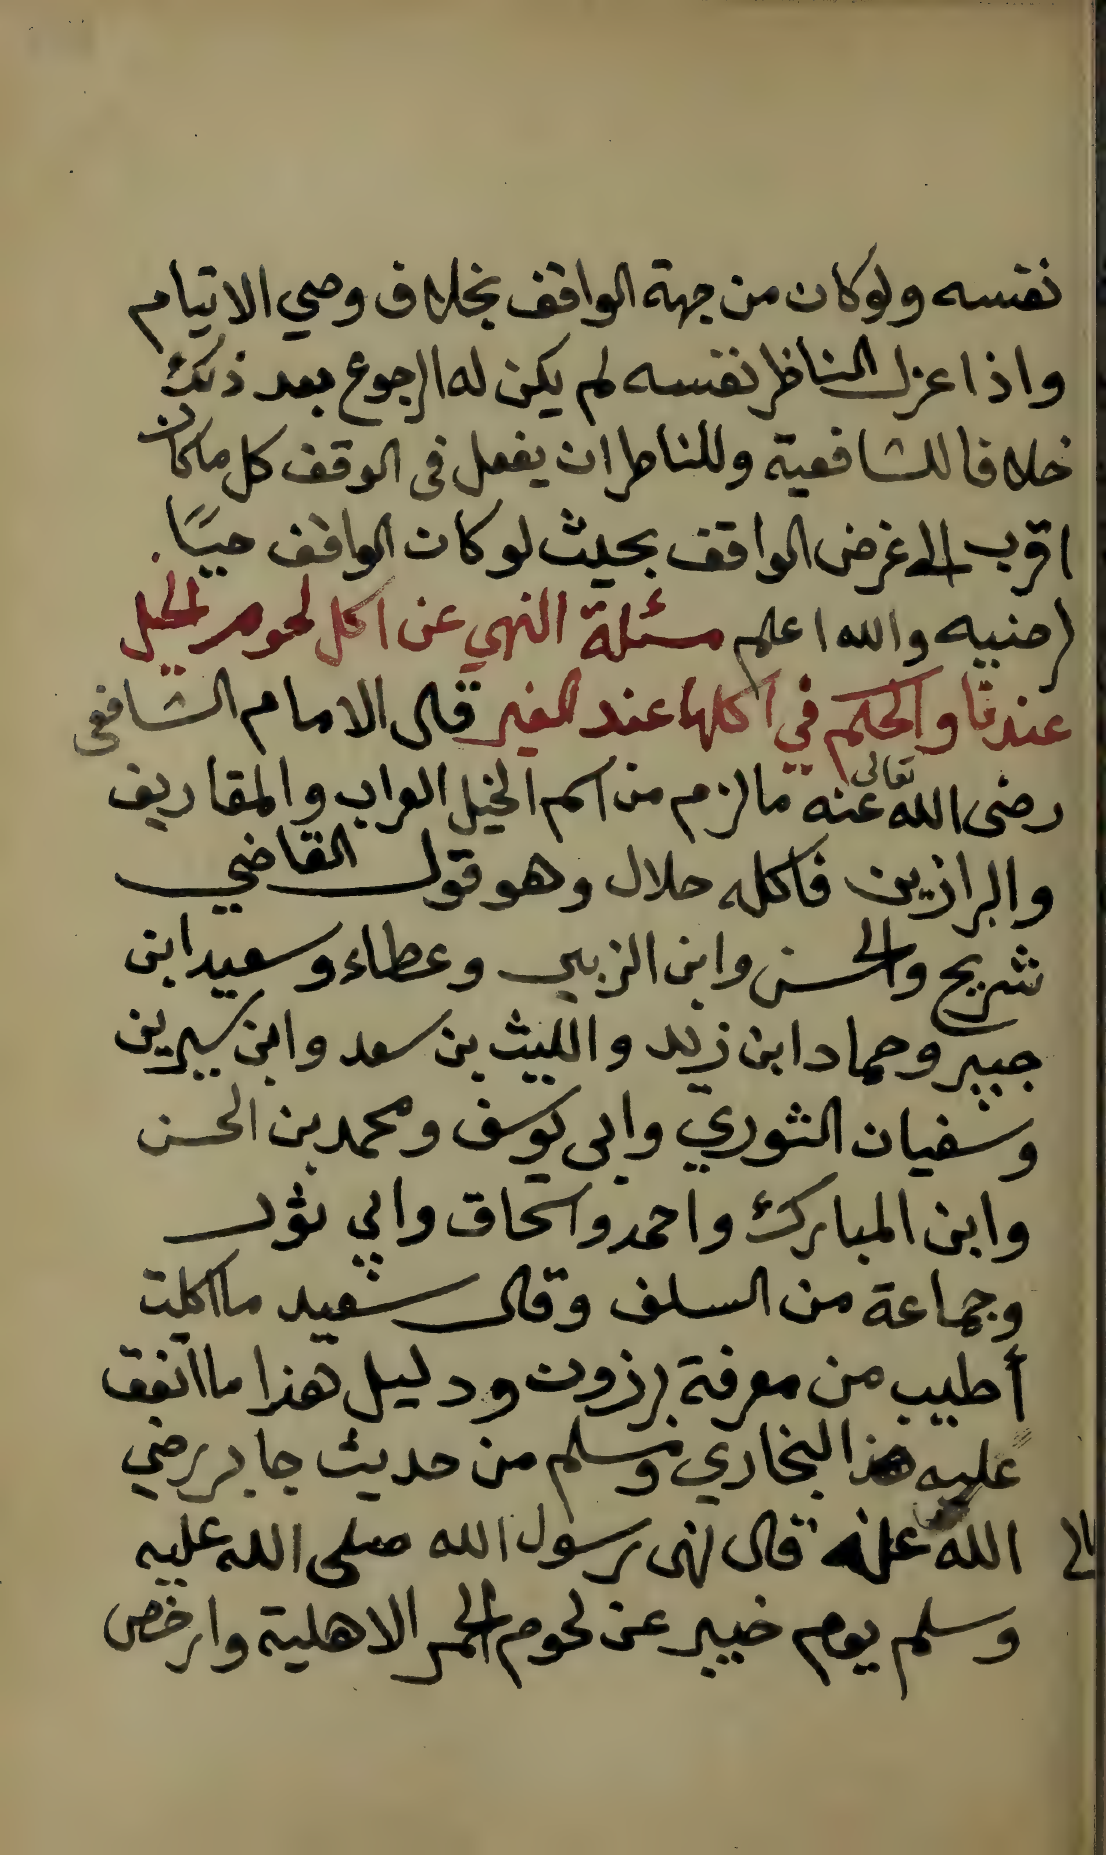 نفسه ولوكان من جهة الواقف بخلاف وصي الايتام
واذا عزل الناظر نفسه لم يكن له الرجوع بعد ذلك
خلافا للشافعية وللناظر ان يفعل في الوقف كل ماكان
اقرب الى غرض الواقف بحيث لو كان الواقف حيـًا
رضيه والله اعلم مسئلة النهي عن اكل لحوم الخيل
عندنا والحكم في اكلها عند الغير قال الامام الشافعى
رضى الله تعالى عنه مالزم من اسم الخيل العراب والمقاريف
والبراذين فاكله حلال وهو قول القاضي
شريح والحسن وابن الزبير وعطاء وسعيد ابن
جبير وحماد ابن زيد والليث بن سعد وابن سيرين
وسفيان الثوري وابى يوسف ومحمد بن الحسن
وابن المبارك واحمد واسحاق وابي ثور
وجماعة من السلف وقال سعيد ما اكلت
أطيب من معرفة برذون ودليل هذا ما اتفق
عليه البخاري ومسلم من حديث جابر رضي
الله عنه قال نهى رسول الله صلى الله عليه
وسلم يوم خيبر عن لحوم الحمر الاهلية وارخص